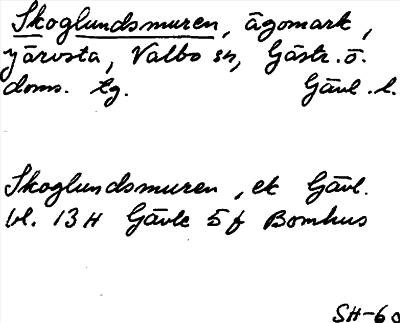 Skoglundsmuren, ägomark,
Järvsta, Valbo sn, Gästr. ö.
doms. tg. Gävl. l.
Skoglundsmuren, ek Gävl.
bl. 13H Gävle 5f Bomhus
SH-60